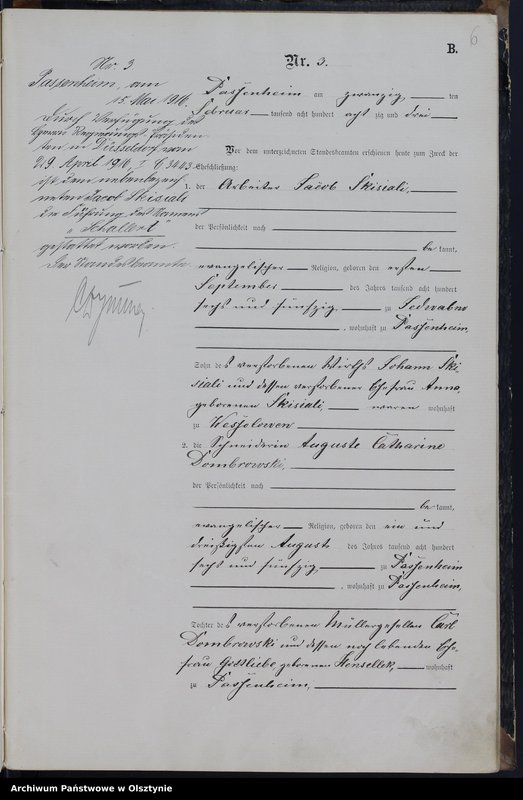 6
B.
Nr. 3.
No 3
Passenheim, am
15. Mai 1916.
Durch Verfügung des
Herrn Regierungs Präsiden
ten in Düsseldorf vom
29 April 1916 I C 3443
ist dem nebenbezeich
neten Jacob Skisiali
die Führung des Namens
"Schallert"
gestattet worden.
Der Standesbeamte.
Passenheim am zwanzig ten
Februar tausend acht hundert acht zig und drei
Vor dem unterzeichneten Standesbeamten erschienen heute zum Zweck der
Eheschließung:
1. der Arbeiter Jacob Skisiali,
der Persönlichkeit nach
be kannt,
evangelischer Religion, geboren den ersten
September des Jahres tausend acht hundert
sechs und fünfzig, zu Jedwabno
, wohnhaft zu Passenheim
Sohn des verstorbenen Wirths Johann Ski
siali und dessen verstorbener Ehefrau Anna,
geborenen Skisiali, waren wohnhaft
zu Wessolowen
2. die Schneiderin Auguste Catharine
Dombrowski,
der Persönlichkeit nach
be kannt,
evangelischer Religion, geboren den ein und
dreißigsten August des Jahres tausend acht hundert
sechs und fünfzig, zu Passenheim
, wohnhaft zu Passenheim,
Tochter des verstorbenen Müllergesellen Carl
Dombrowski und dessen noch lebenden Ehe-
frau Gottliebe, geborenen Hensellek, wohnhaft
zu Passenheim,
Archiwum Państwowe w Olsztynie